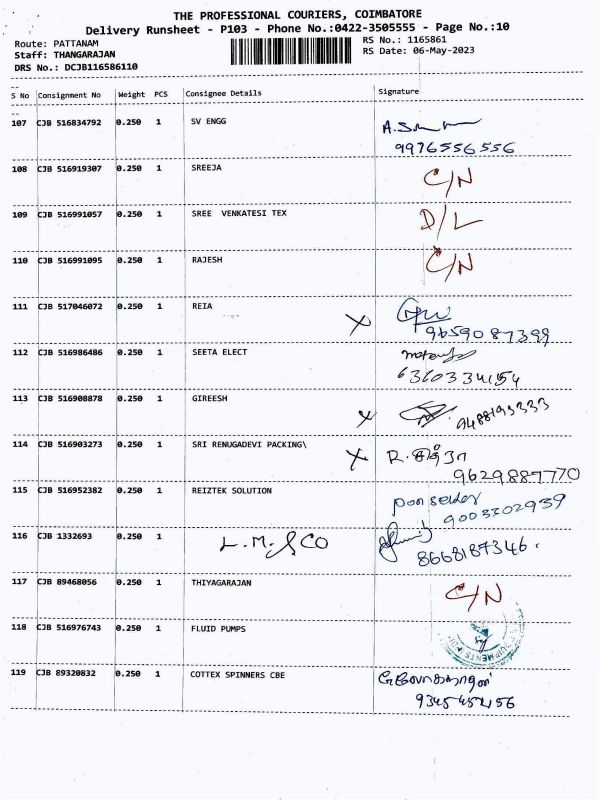 THE PROFESSIONAL COURIERS, COIMBATORE
Delivery Runsheet - P103 - Phone No.:0422-3505555 - Page No.:10
Route: PATTANAM RS No.: 1165861
Staff: THANGARAJAN RS Date: 06-May-2023
DRS No.: DCJB116586110
S No Consignment No Weight PCS Consignee Details Signature
107 CJB 516834792 0.250 1 SV ENGG
9976556556
108 CJB 516919307 0.250 1 SREEJA C/N
109 CJB 516991057 0.250 1 SREE VENKATESI TEX D/L
110 CJB 516991095 0.250 1 RAJESH C/N
111 CJB 517046072 0.250 1 REIA X
9659087399
112 CJB 516986486 0.250 1 SEETA ELECT
6360334154
113 CJB 516908878 0.250 1 GIREESH X 9488193333
114 CJB 516903273 0.250 1 SRI RENUGADEVI PACKING\ X
9629887770
115 CJB 516952382 0.250 1 REIZTEK SOLUTION
9003302939
116 CJB 1332693 0.250 1 L.M.&CO
8668187346.
117 CJB 89468056 0.250 1 THIYAGARAJAN C/N
118 CJB 516976743 0.250 1 FLUID PUMPS
119 CJB 89320832 0.250 1 COTTEX SPINNERS CBE
9345452156